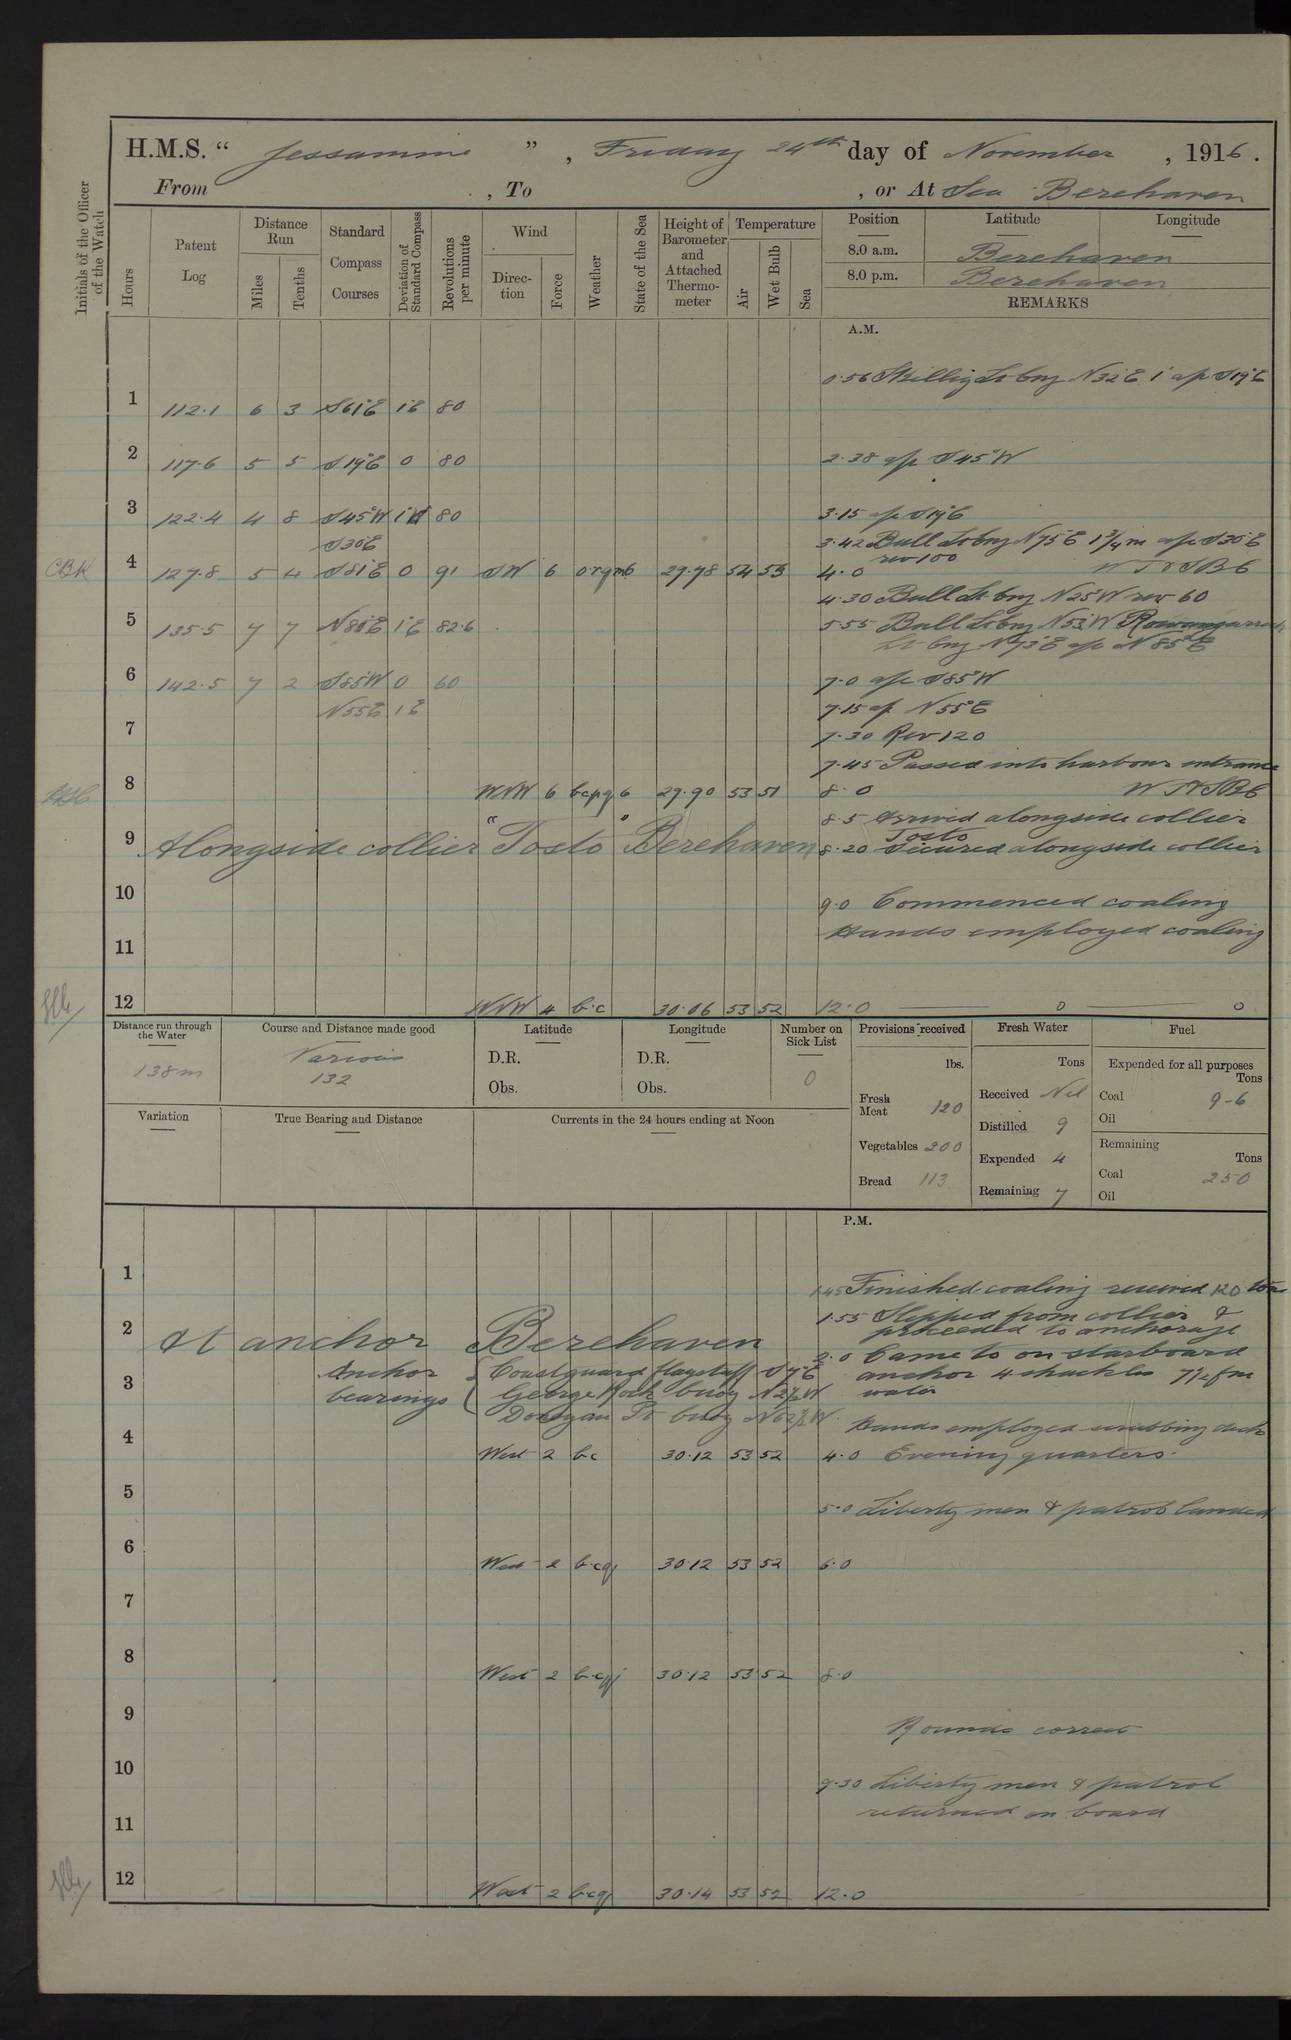 H.M.S. " Jessamine " , Friday 24th day of November , 1916 .
From , To , or At Sea Berehaven
Initials of the Officer of the Watch
Hours
Patent Log
Distance Run
Miles
Tenths
Standard Compass Courses
Deviation of Standard Compass
Revolutions per minute
Wind
Direction
Force
Weather
State of the Sea
Height of Barometer and Attached Thermometer
Temperature
Air
Wet Bulb
Sea
Position Latitude Longitude
8.0 a.m. Berehaven
8.0 p.m. Berehaven
REMARKS
A.M.
0.56 Skellig Lt brg N32°E 1' a/c S19°E
1 112.1 6 3 S61°E 1°E 80
2 117.6 5 5 S19°E 0 80 2.38 a/c S45°W
3 122.4 4 8 S45°W 1°W 80 3.15 a/c S19°E
S30°E 3.42 Bull Lt brg N75°E 1 3/4 m a/c S30°E
rev 100
CBK 4 127.8 5 4 S81°E 0 91 SW 6 29.78 54 53 4.0
4.30 Bull Lt brg N25°W rev 60
5 135.5 7 7 N85°E 1°E 82.6 5.55 Bull Lt brg N53°W
Lt brg N73°E a/c N85°E
6 142.5 7 2 S85°W 0 60 7.0 a/c S85°W
N55E 1E 7.15 a/c N55°E
7 7.30 Rev 120
7.45 Passed into harbour entrance
8 WNW 6 bcpq 6 29.90 53 51 8.0
8.5 Arrived alongside collier
Tosto
9 Alongside collier "Tosto" Berehaven 8.20 Secured alongside collier
10 9.0 Commenced coaling
Hands employed coaling
11
12 WNW 4 b.c 30.06 53 52 12.0
Distance run through the Water
138m
Course and Distance made good
Various
132
Latitude
D.R.
Obs.
Longitude
D.R.
Obs.
Number on Sick List
0
Provisions received
lbs.
Fresh Meat 120
Vegetables 200
Bread 113
Fresh Water
Tons
Received Nil
Distilled 9
Expended 4
Remaining 7
Fuel
Expended for all purposes
Tons
Coal 9-6
Oil
Remaining
Tons
Coal 250
Oil
Variation
True Bearing and Distance
Currents in the 24 hours ending at Noon
P.M.
1 1.45 Finished coaling received 120 tons
1.55 Slipped from collier &
proceeded to anchorage
2 At anchor Berehaven
2.0 Came to on starboard
anchor 4 shackles 7½ fm
water
3 Anchor bearings
Coastguard flagstaff S7°E
George Rock buoy N2½W
Donegan Pt buoy N62½W
Hands employed scrubbing decks
4 West 2 bc 30.12 53 52 4.0 Evening quarters
5 5.0 Liberty men & patrol landed
6 West 2 b.cq 30.12 53 52 6.0
7
8 West 2 30.12 53 52 8.0
9 Rounds correct
10 9.30 Liberty men & patrol
returned on board
11
12 West 2 b.cq 30.14 53 52 12.0